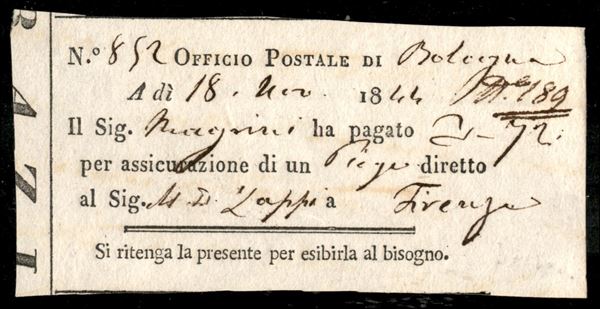 N.º 852 OFFICIO POSTALE DI Bologna
A dì 18. Nov. 1844
Il Sig. Magrini ha pagato 72.
per assicurazione di un Piego diretto
al Sig. M. D. Zappi a Firenze
Si ritenga la presente per esibirla al bisogno.